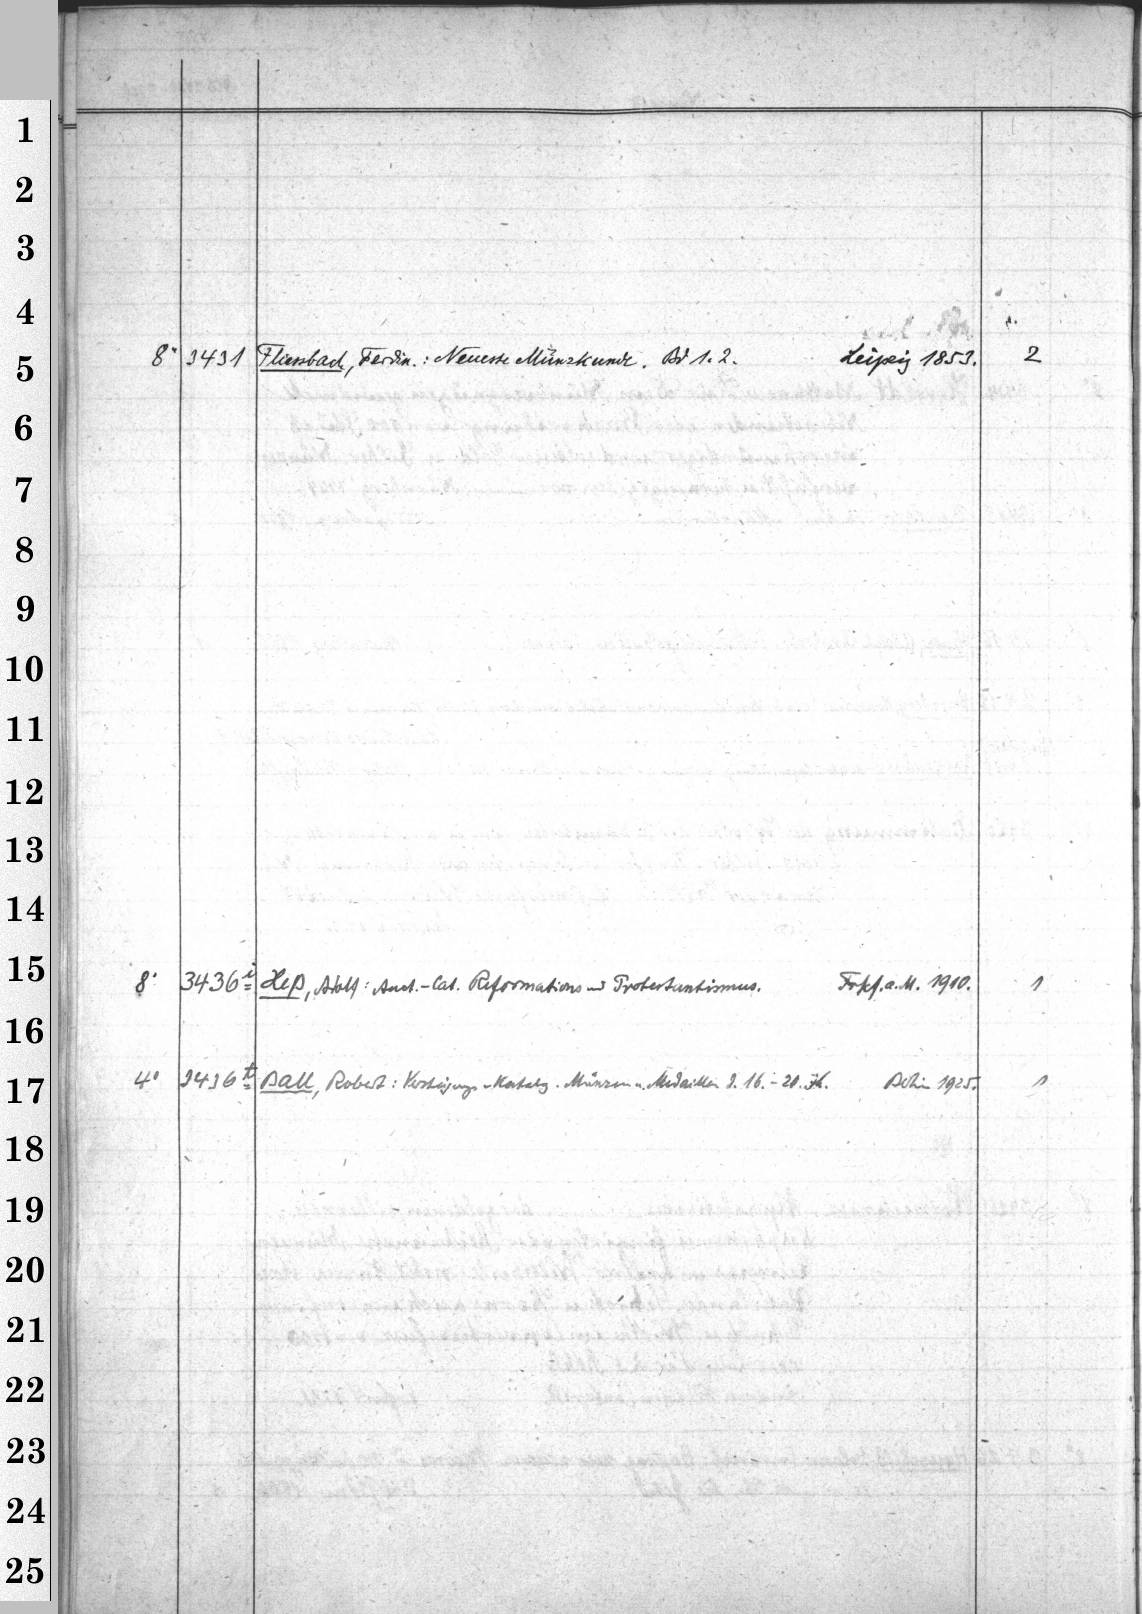 1
2
3
4
8° 3431 Fliessbach, Ferdin.: Neueste Münzkunde. Bd 1. 2. Leipzig 1853. 2
5
6
7
8
9
10
11
12
13
14
15
8° 3436 i Heß, Adolf: Auct.-Cat. Reformations und Protestantismus. Frkf. a. M. 1910. 1
16
4° 3436 t Ball, Robert: Versteigungs-Katalog. Münzen u. Medaillen d. 16.-20. Jh. Berlin 1925. 1
17
18
19
20
21
22
23
24
25